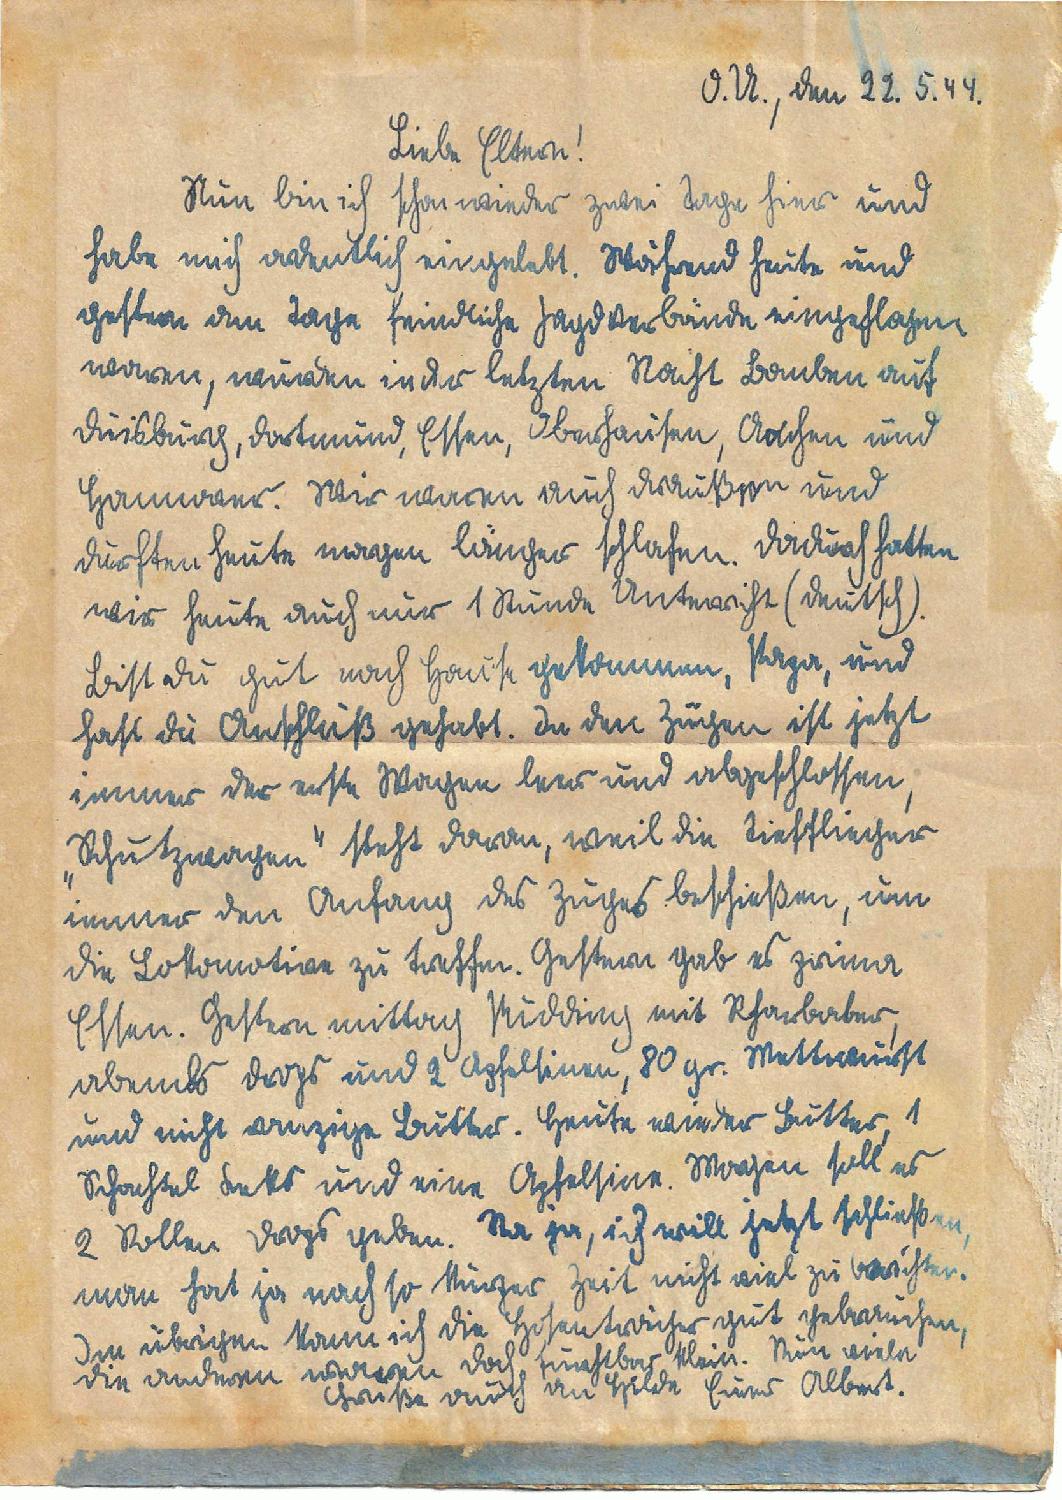 O.U., den 22.5.44.
Liebe Eltern!
Nun bin ich schon wieder zwei Tage hier und
habe mich ordentlich eingelebt. Während heute und
gestern am Tage feindliche Jagdverbände eingeflogen
waren, wurden in der letzten Nacht Bomben auf
Duisburg, Dortmund, Essen, Oberhausen, Aachen und
Hannover. Wir waren auch draußen und
durften heute morgen länger schlafen. Dadurch hatten
wir heute auch nur 1 Stunde Unterricht (Deutsch).
Bist du gut nach Hause gekommen, Papa, und
hast du Anschluß gehabt. In den Zügen ist jetzt
immer der erste Wagen leer und abgeschlossen,
„Schutzwagen“ steht daran, weil die Tiefflieger
immer den Anfang des Zuges beschießen, um
die Lokomotive zu treffen. Gestern gab es prima
Essen. Gestern mittag Pudding mit Rharbaber,
abends Drops und 2 Apfelsinen, 80 gr. Mettwurst
und nicht ranzige Butter. Heute wieder Butter, 1
Schachtel Keks und eine Apfelsine. Morgen soll es
2 Rollen Drops geben. Na ja, ich will jetzt schließen,
man hat ja nach so kurzer Zeit nicht viel zu berichten.
Im übrigen kann ich die Hosenträger gut gebrauchen,
die anderen waren doch furchtbar klein. Nun viele
Grüße auch an Hilde Euer Albert.